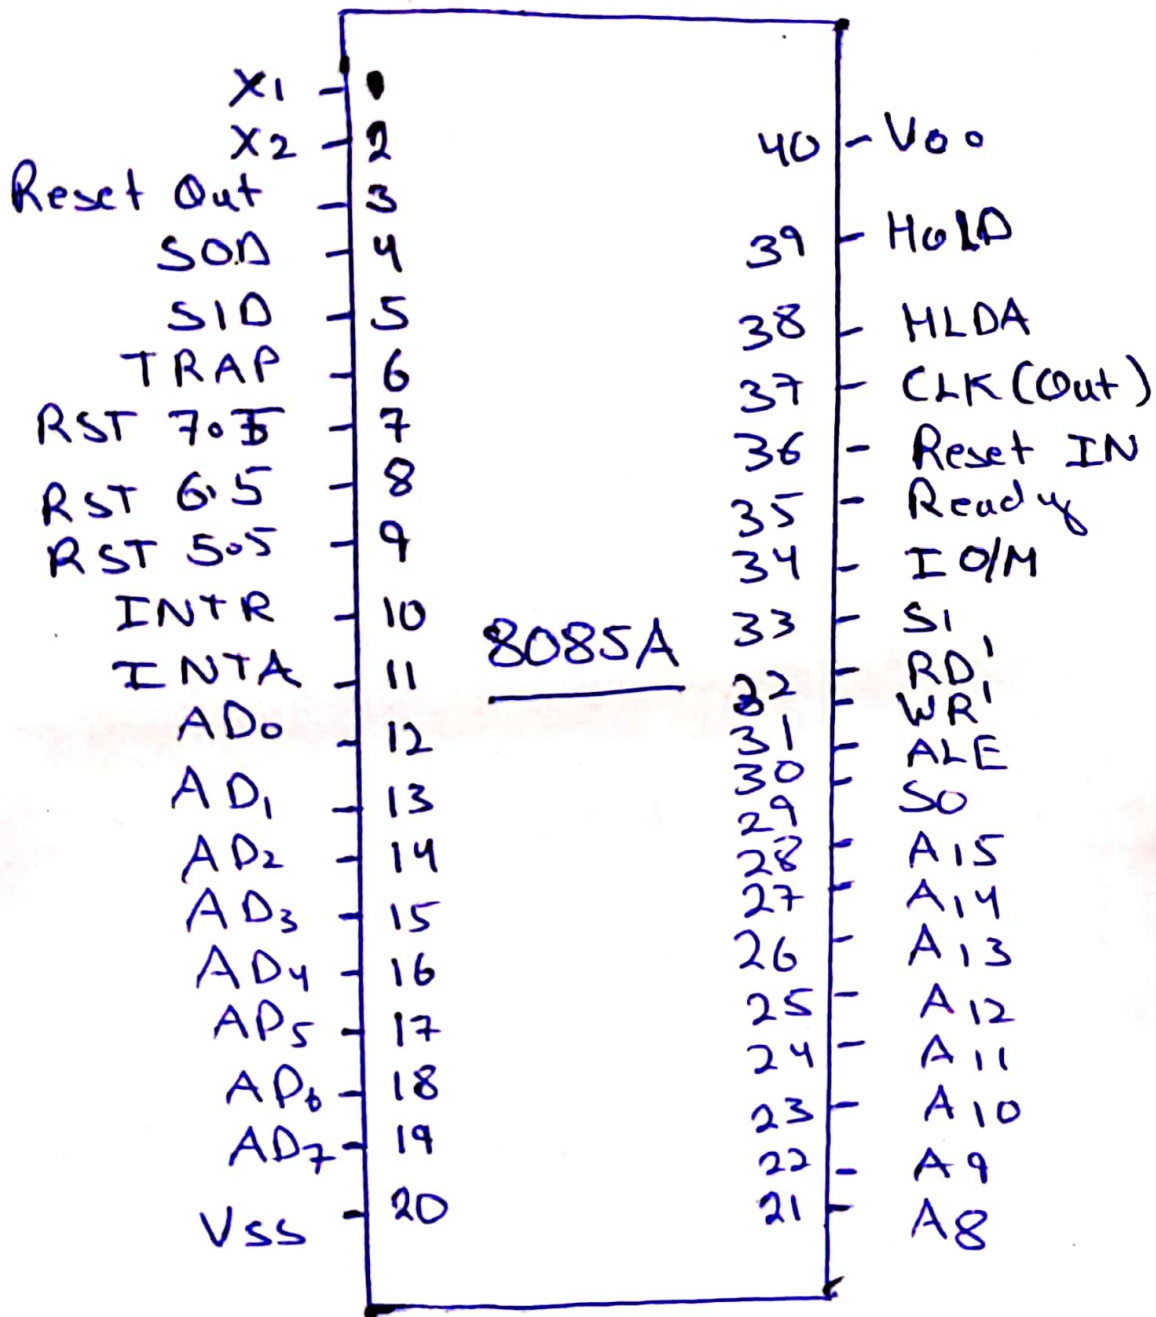 X1 1
X2 2
Reset Out 3
SOD 4
SID 5
TRAP 6
RST 7.5 7
RST 6.5 8
RST 5.5 9
INTR 10
INTA 11
AD0 12
AD1 13
AD2 14
AD3 15
AD4 16
AD5 17
AD6 18
AD7 19
Vss 20
8085A
40 VDD
39 HOLD
38 HLDA
37 CLK (Out)
36 Reset IN
35 Ready
34 IO/M
33 S1
32 RD'
31 WR'
30 ALE
29 SO
28 A15
27 A14
26 A13
25 A12
24 A11
23 A10
22 A9
21 A8